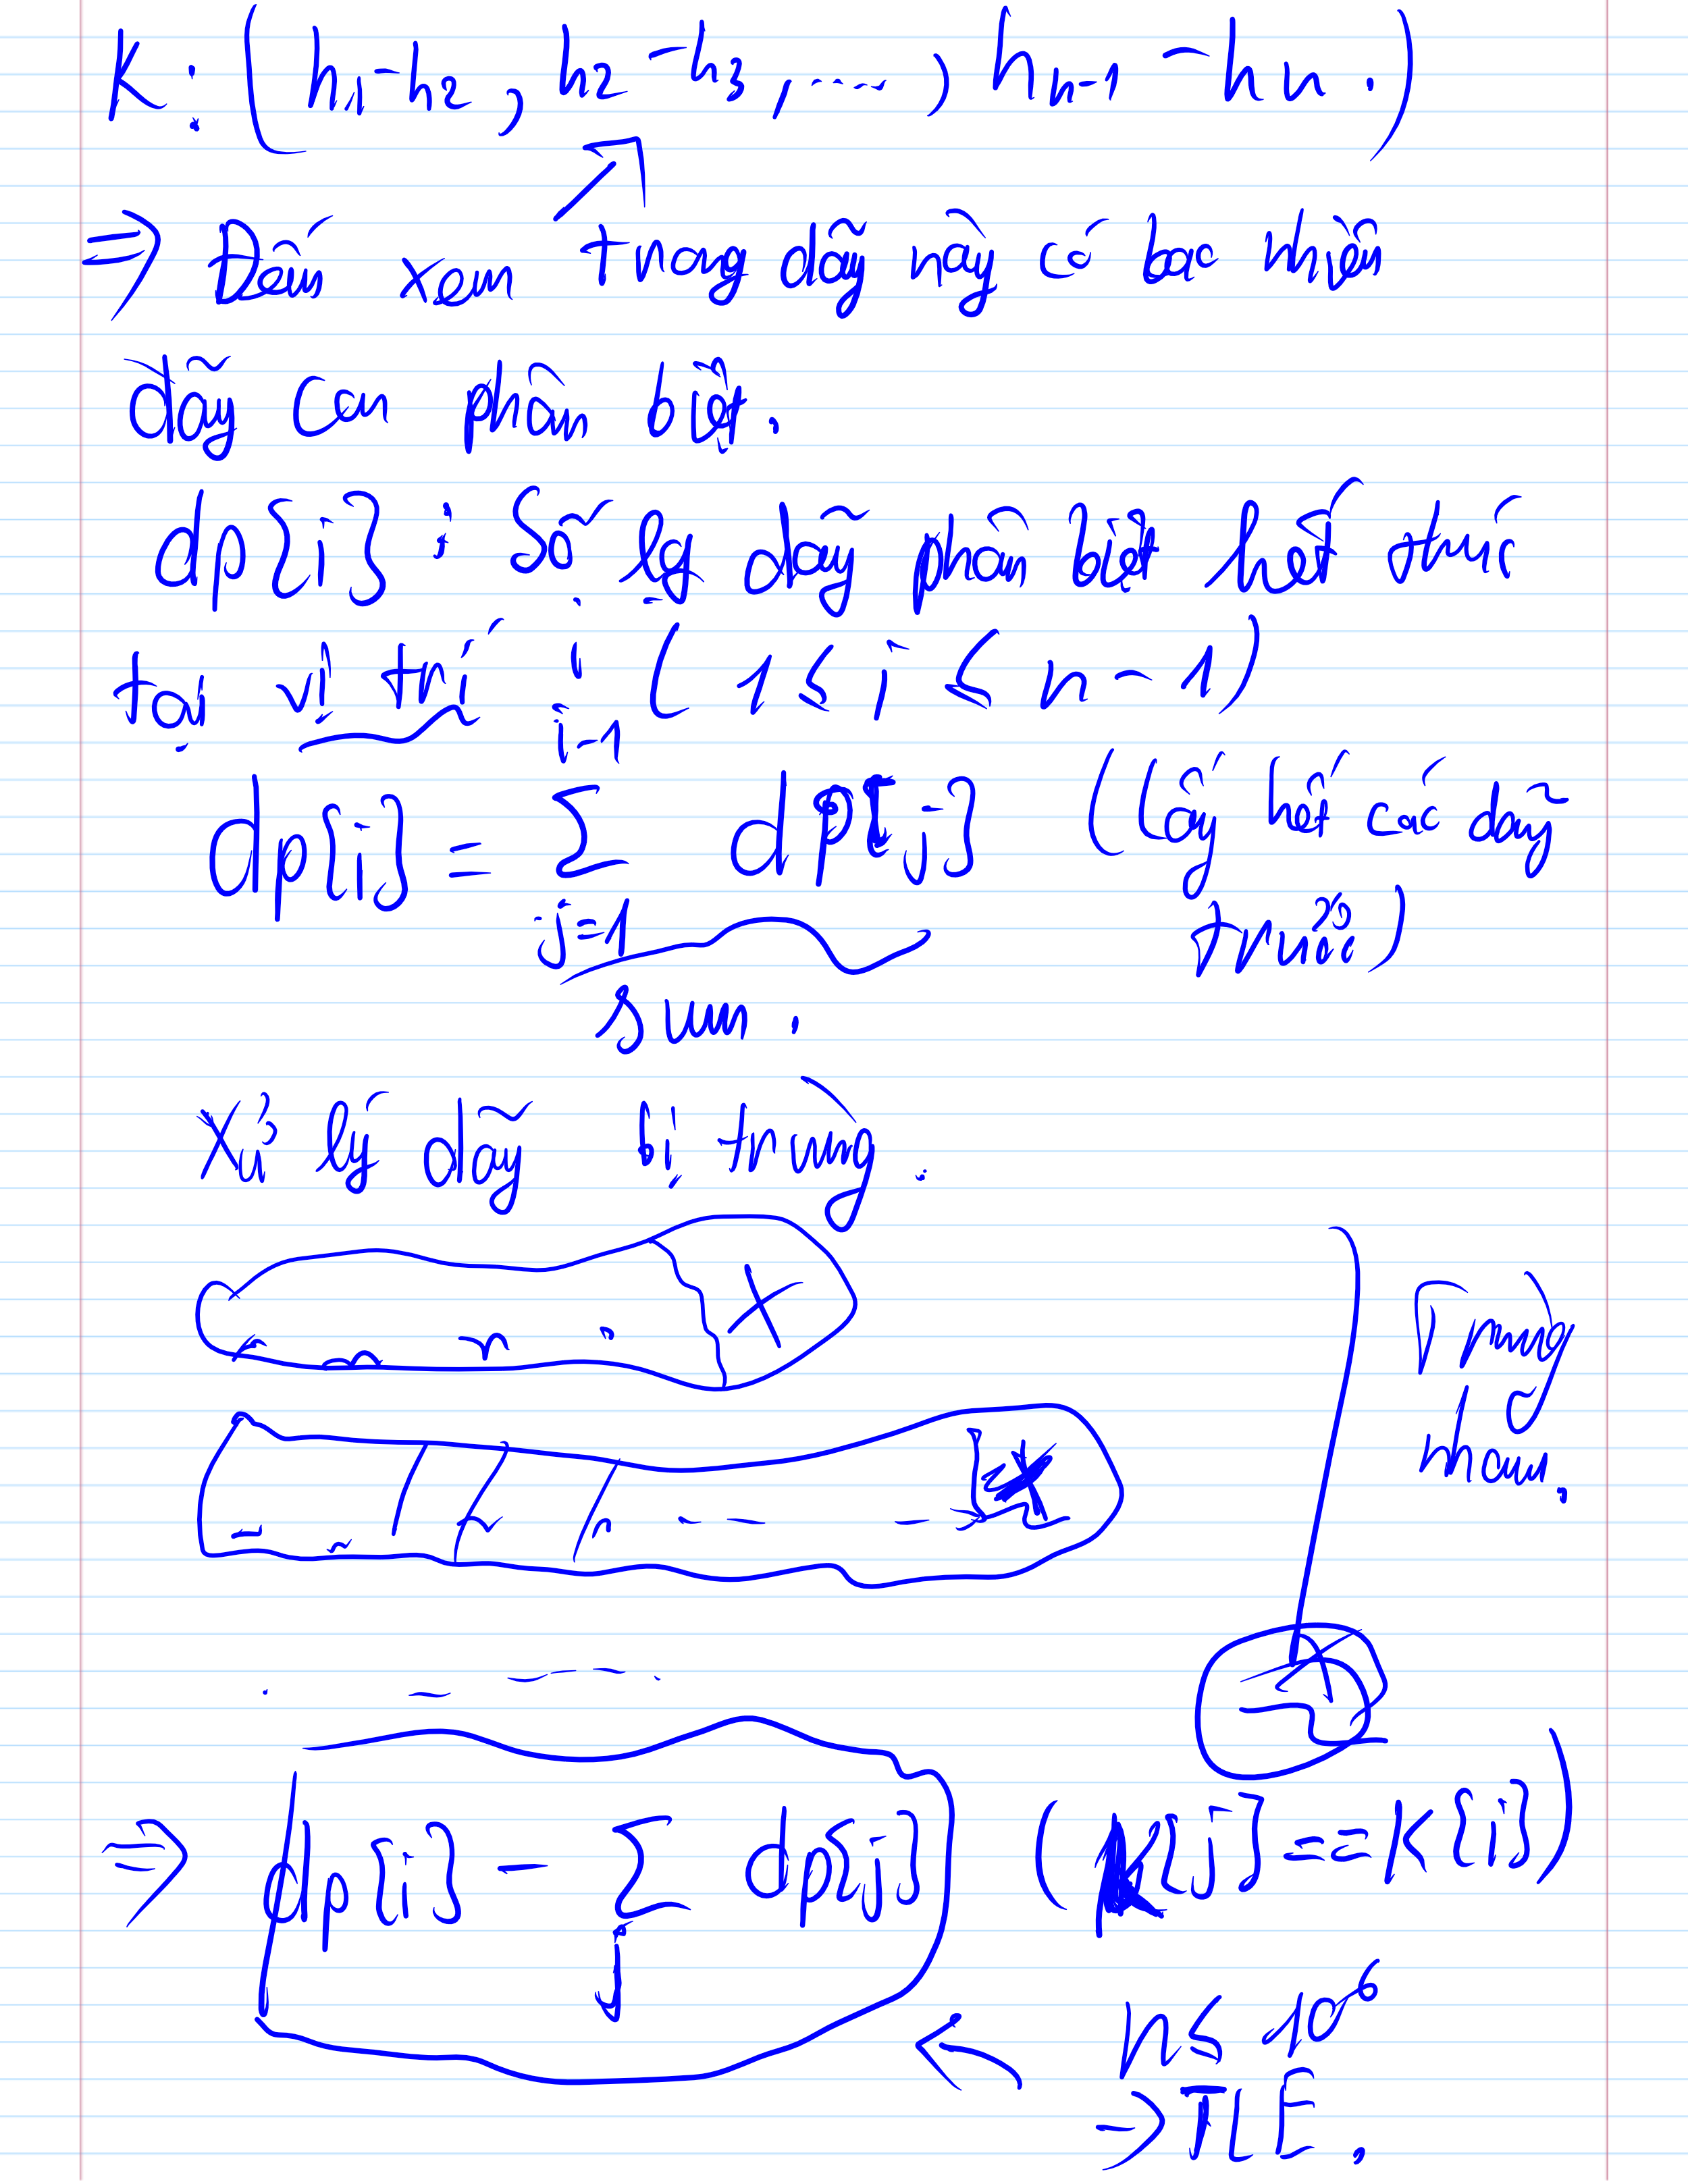 K: (h1-h2, h2-h3, ....., hn-1 - hn.)
=> Đếm xem trong dãy này có bao nhiêu
dãy con phân biệt.
dp[i] : Số lg dãy phân biệt kết thúc
tại vị trí i (1 ≤ i ≤ n-1)
dp[i] = ∑_{j=1}^{i-1} dp[j] (lấy hết các dãy
trước)
sum.
Xử lý dãy bị trùng.
Trùng
nhau.
=> dp[i] - ∑_j dp[j] (K[j] == K[i])
n ≤ 10^6
-> TLE.